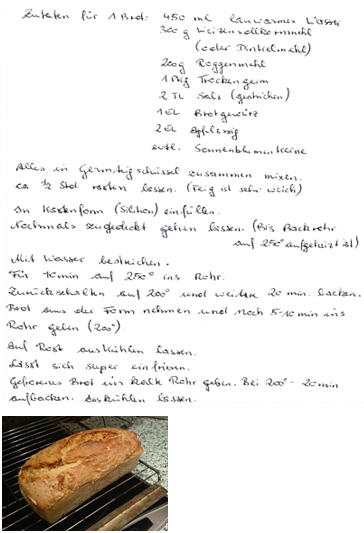 Zutaten für 1 Brot: 450 ml lauwarmes Wasser
300 g Weizenvollkornmehl
(oder Dinkelmehl)
200g Roggenmehl
1 Pkg Trockengerm
2 TL Salz (gestrichen)
1 EL Brotgewürz
2 EL Apfelessig
evtl. Sonnenblumenkerne
Alles in Germteigschüssel zusammen mixen.
ca 1/2 Std. rasten lassen. (Teig ist sehr weich)
In Kastenform (Silikon) einfüllen.
Nochmals zugedeckt gehen lassen. (Bis Backrohr
auf 250° aufgeheizt ist)
Mit Wasser bestreichen.
Für 10 min auf 250° ins Rohr.
Zurückschalten auf 200° und weitere 20 min. backen.
Brot aus der Form nehmen und noch 5-10 min ins
Rohr geben (200°).
Auf Rost auskühlen lassen.
Lässt sich super einfrieren.
Gefrorenes Brot ins kalte Rohr geben. Bei 200° - 20 min
aufbacken. Auskühlen lassen.